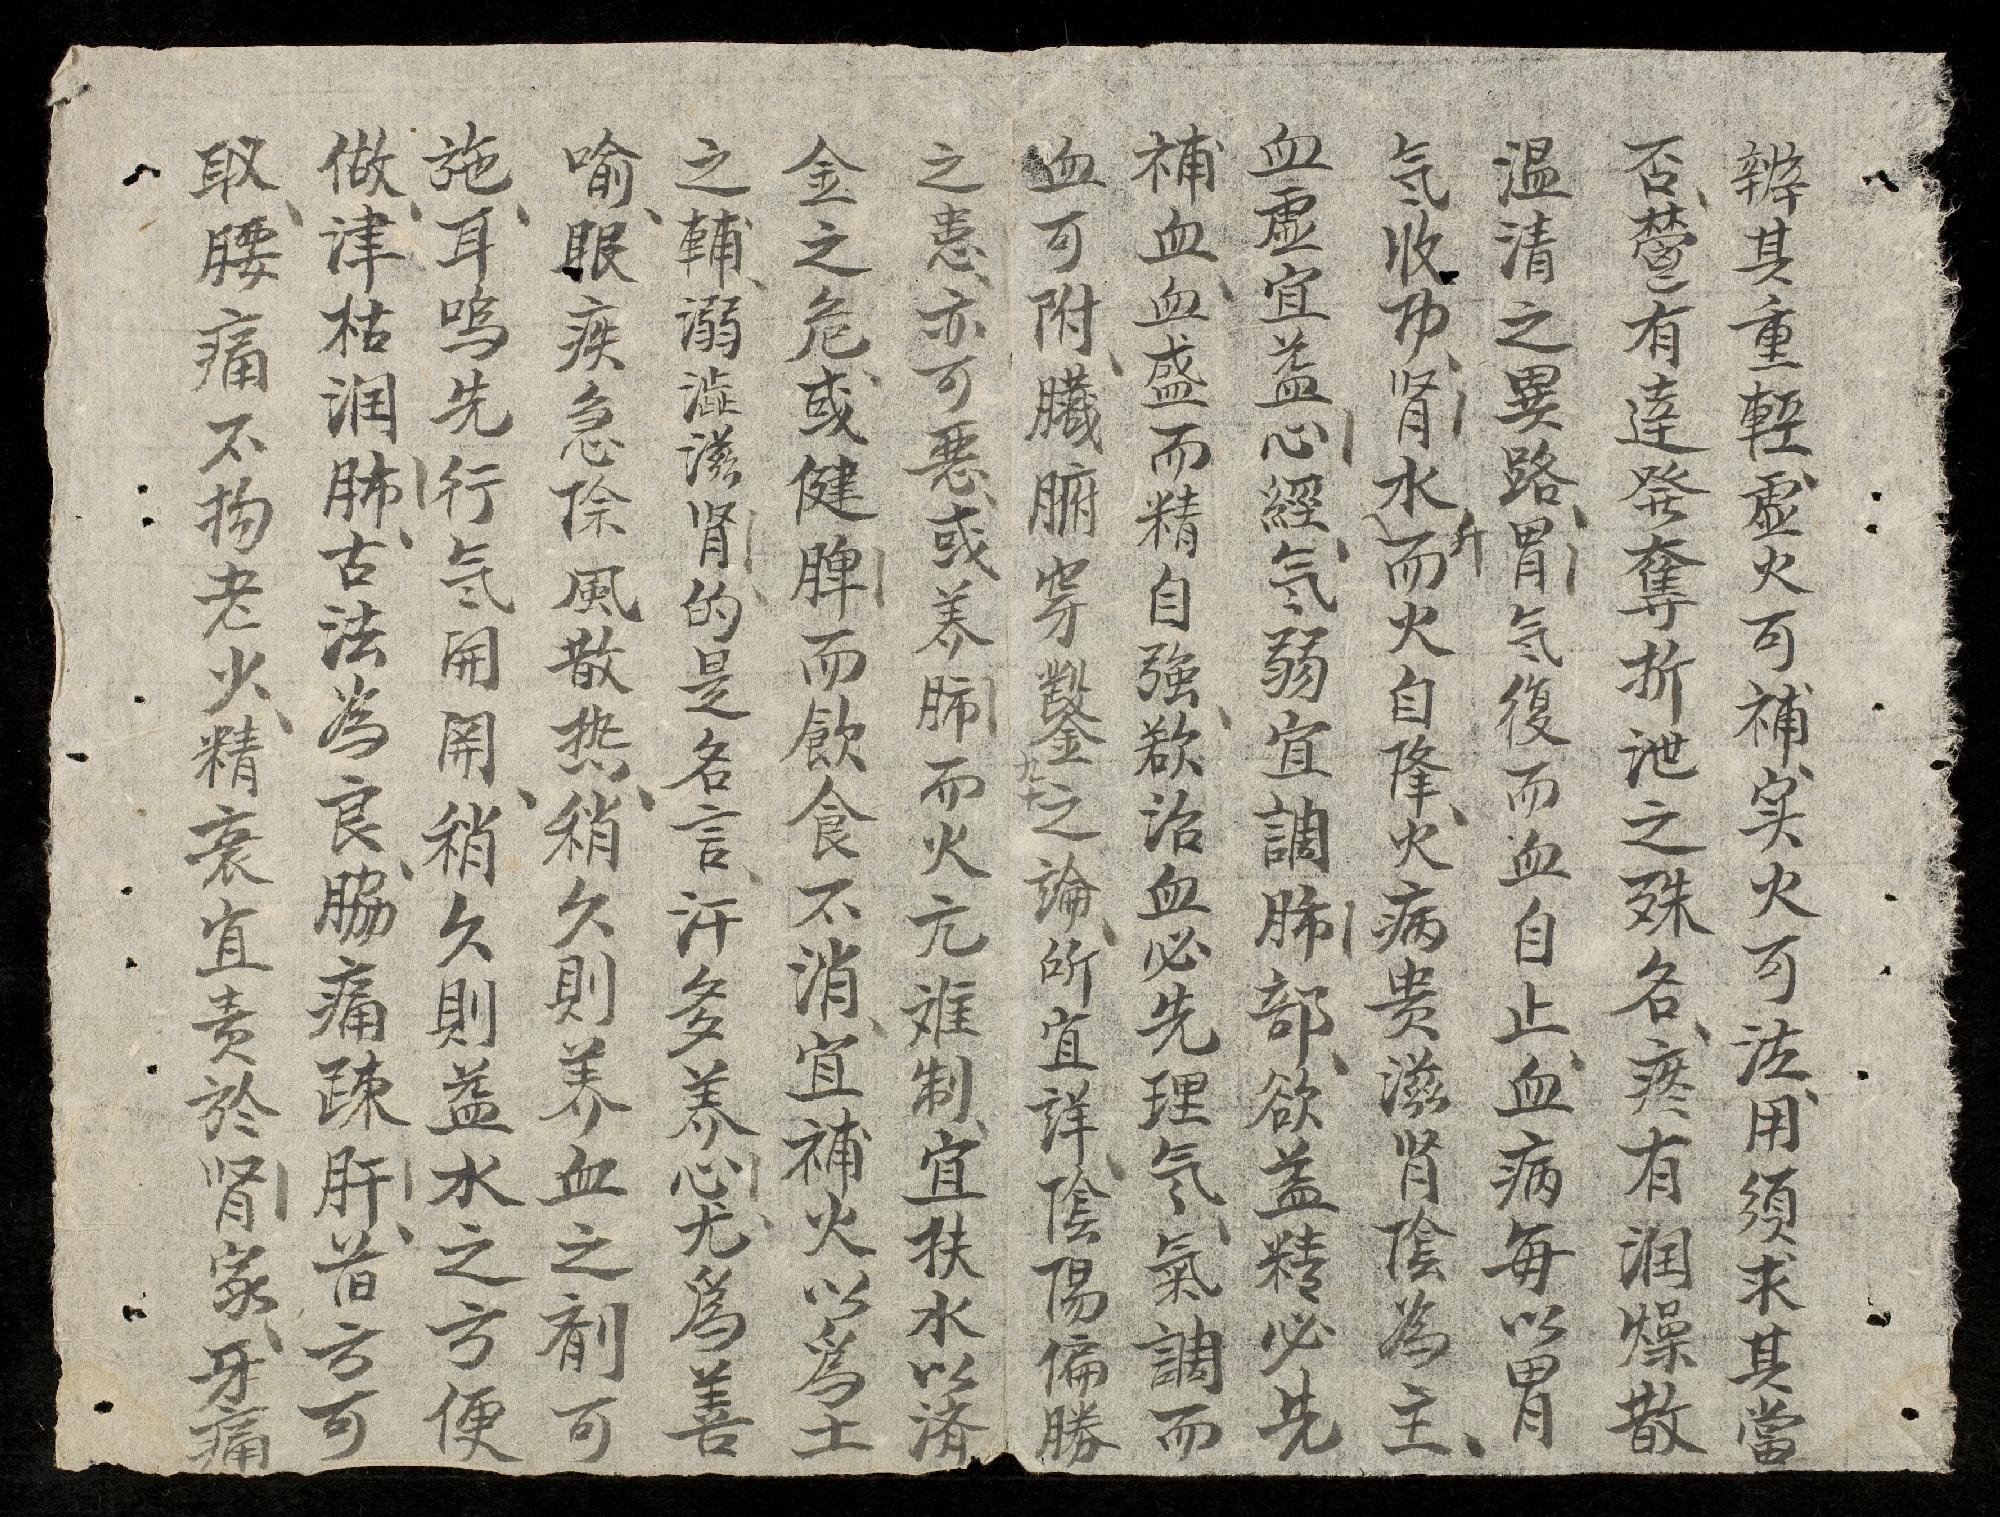 辨其重輕虛火可補实火可㳒用須求其當
否鬱有達癸奪折泄之殊名痰有润燥散
温清之異路胃气復而血自止血病每以胃
气收功肾水升而火自降火病贵滋肾陰為主
血虛宜益心經气弱宜調肺部欲益精必先
補血血盛而精自強欲治血必先理气氣調而
血可附臟腑穿鑿之論所宜詳陰陽偏勝
之患亦可悪或养肺而火亢难制宜扶水以済
金之危或健脾而飲食不消宜補火以爲土
之輔溺澁滋肾的是名言汗多养心尤爲善
喻眼疾急除風散热稍久則养血之剤可
施耳鳴先行气開関稍久則益水之方便
做津枯润肺古法為良脇痛踈肝昔方可
取腰痛不拘老少精衰宜责於肾家牙痛